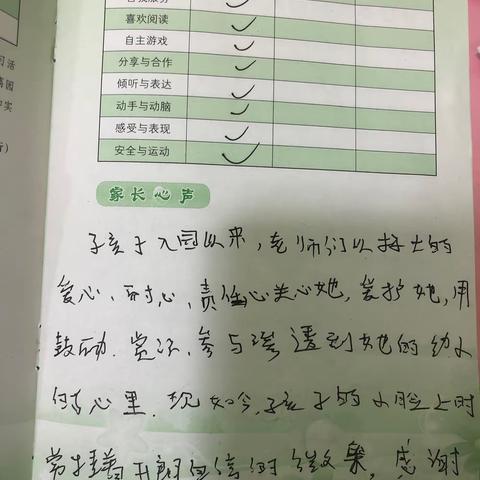 喜欢阅读
自主游戏
分享与合作
倾听与表达
动手与动脑
感受与表现
安全与运动
家长心声
孩子入园以来,老师们以极大的
爱心、耐心,责任心关心她,爱护她,用
鼓励、赏识、参与渗透到她的幼小
心里。现如今,孩子的小脸上时
常挂着自信的微笑,感谢